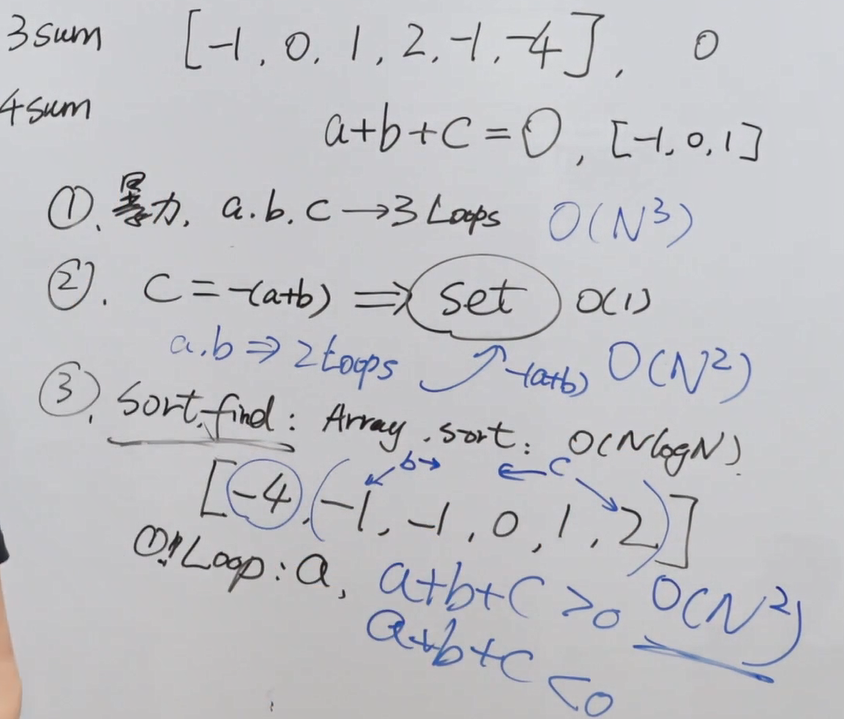 3sum [-1, 0, 1, 2, -1, -4], 0
4sum
a+b+c=0, [-1, 0, 1]
①、暴力, a.b.c→3 Loops O(N³)
②. C=-(a+b) ⇒ set O(1)
a.b⇒2 Loops -(a+b) O(N²)
③、Sort.find: Array.sort: O(NlogN).
b→ ←c
[-4, (-1, -1, 0, 1, 2)]
①! Loop: a, a+b+c>0 O(N²)
a+b+c<0